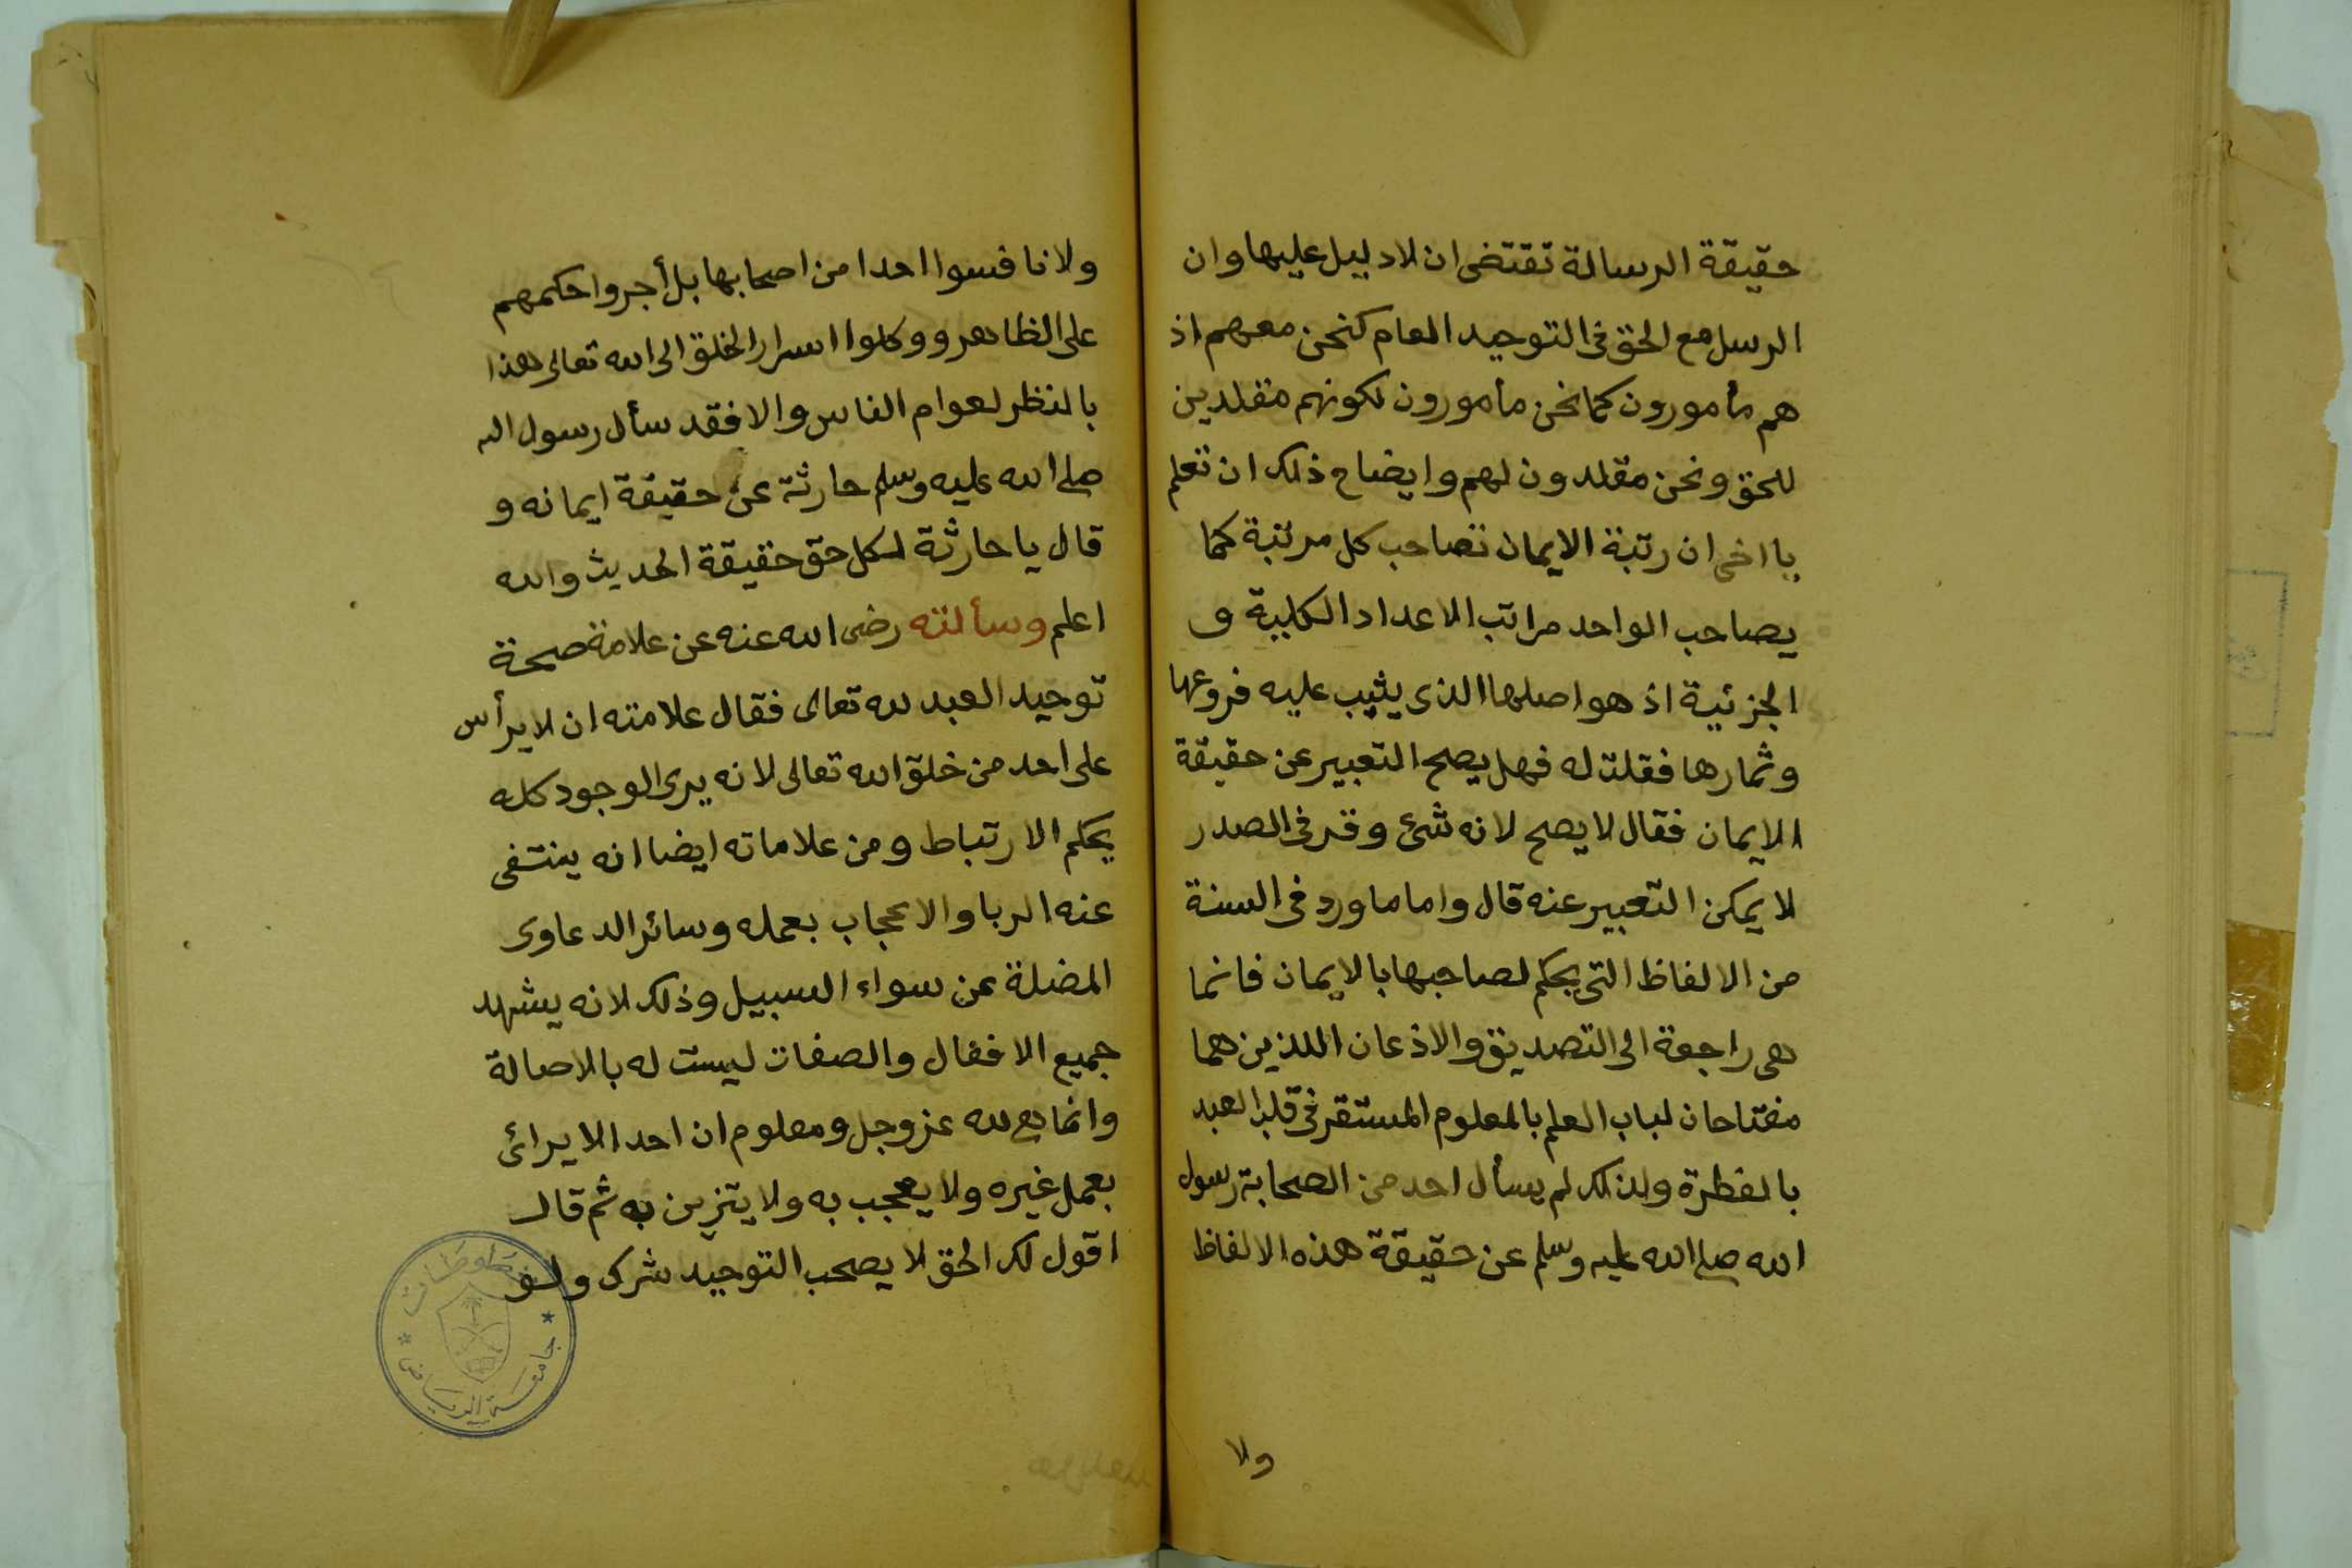 حقيقة الرسالة تقتضى ان لا دليل عليها وان
الرسل مع الحق فى التوحيد العام كنحن معهم اذ
هم مأمورون كما نحن مأمورون لكونهم مقلدين
للحق ونحن مقلدون لهم وايضاح ذلك ان تعلم
يا اخى ان رتبة الايمان تصاحب كل مرتبة كما
يصاحب الواحد مراتب الاعداد الكلية و
الجزئية اذ هو اصلها الذى يثيب عليه فروعها
وثمارها فقلت له فهل يصح التعبير عن حقيقة
الايمان فقال لا يصح لانه شئ وقر فى الصدر
لا يمكن التعبير عنه قال واما ما ورد فى السنة
من الالفاظ التى يحكم لصاحبها بالايمان فانما
هى راجعة الى التصديق والاذعان اللذين هما
مفتاحان لباب العلم بالمعلوم المستقر فى قلب العبد
بالفطرة ولذلك لم يسأل احد من الصحابة رسول
الله صلى الله عليه وسلم عن حقيقة هذه الالفاظ
ولا
ولا نافسوا احدا من اصحابها بل أجروا حكمهم
على الظاهر ووكلوا اسرار الخلق الى الله تعالى هذا
بالنظر لعوام الناس والا فقد سأل رسول الله
صلى الله عليه وسلم حارثة عن حقيقة ايمانه و
قال يا حارثة لكل حق حقيقة الحديث والله
اعلم وسألته رضى الله عنه عن علامة صحة
توحيد العبد لله تعالى فقال علامته ان لا يرأس
على احد من خلق الله تعالى لانه يرى الوجود كله
بحكم الارتباط ومن علاماته ايضا انه ينتفى
عنه الربا والاعجاب بعمله وسائر الدعاوى
المضلة عن سواء السبيل وذلك لانه يشهد
جميع الافعال والصفات ليست له بالاصالة
وانما هى لله عز وجل ومعلوم ان احدا لا يرائى
بعمل غيره ولا يعجب به ولا يتزين به ثم قال
اقول لك الحق لا يصحب التوحيد شرك
مخطوطات
جامعة الرياض